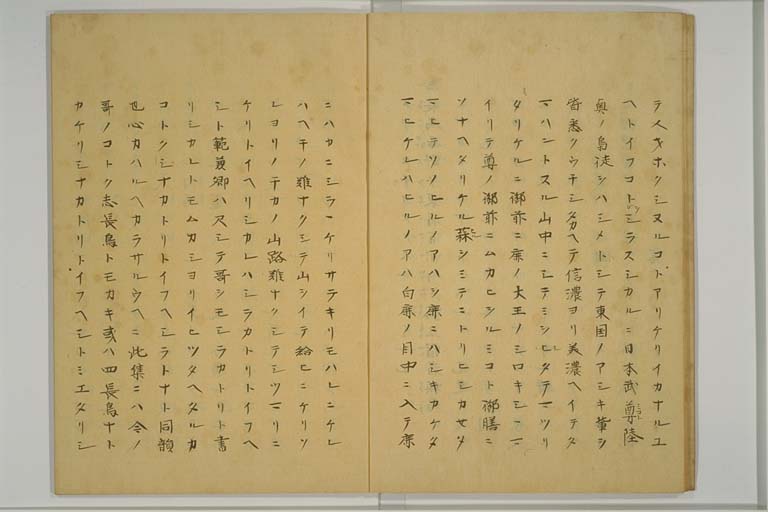 テ人オホクシヌルコトアリケリイカナルユ
ヘトイフコトヲシラスシカルニ日本武尊陸
奥ノ鳥徒シハシメトシテ東国ノアシキ輩シ
皆悉クウチシタカヘテ信濃ヨリ美濃ヘイテタ
マハントスル山中ニシテミシヒタテマツリ
タリケルニ御前ニ鹿ノ大王ノシロキシニニ
イリテ尊ノ御前ニムカヒシルミコト御膳ニ
ソナヘタリケル蒜シミテニトリヒシカセタ
マヒテソノヒルノアハシ鹿ニハシキカケタ
マヒケレハヒルノアハ白鹿ノ目中ニ入テ鹿
ニハカニシニケリサテキリモハレニケレ
ハヘチノ難ナクシテ山シイテ給ヒニケリソ
レヨリノチカノ山路難ナクシテミツマリニ
ケリトイヘリシカレハシラカトリトイフヘ
シト範兼卿ハ尺シテ哥シモシラカトリト書
リシカレトモムカシヨリイヒツタヘタルカ
コトクシナカトリトイフヘシラトナト同韻
也心カハルヘカラサルウヘニ此集ニハ今ノ
哥ノコトク志長鳥トモカキ或ハ四長鳥ナト
カケリシナカトリトイフヘシトミエタリシ